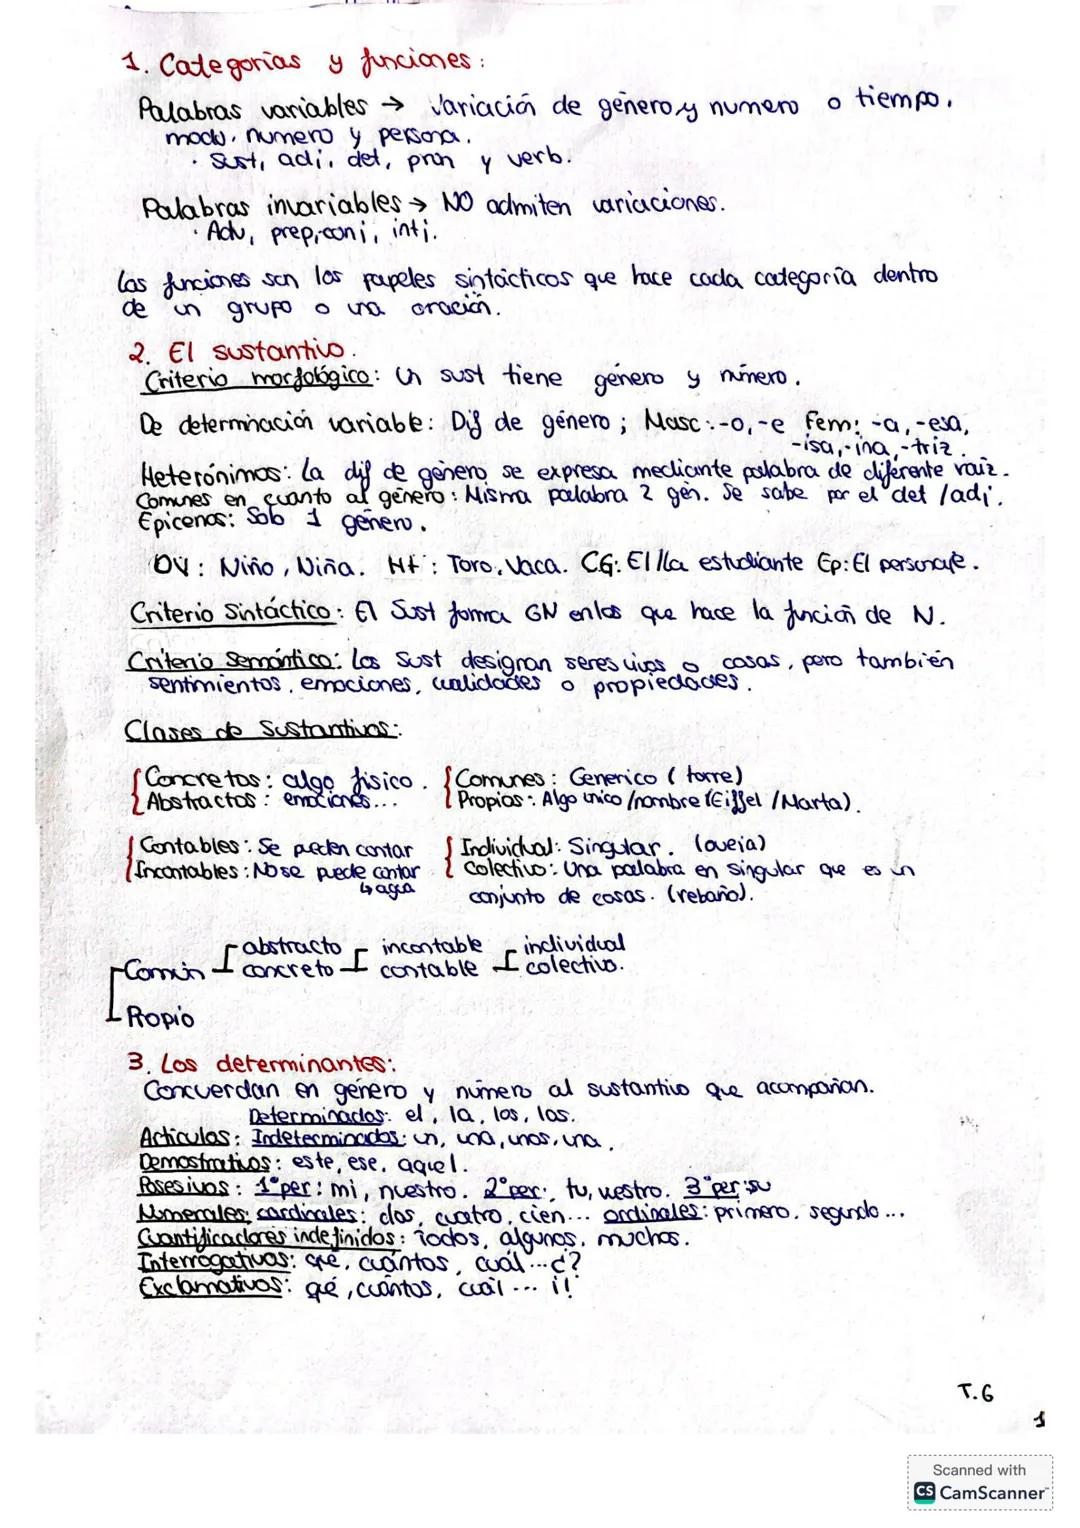 1. Categorías y funciones:
Palabras variables → Variación de género y numero o tiempo,
modo, numero y persona.
· Sust, adj, det, pron y verb.
Palabras invariables → NO admiten variaciones.
· Adv, prep, conj, intj.
Las funciones son los papeles sintácticos que hace cada categoría dentro
de un grupo o una oración.
2. El sustantivo.
Criterio morfológico: Un sust tiene género y número.
De determinación variable: Dif de género; Masc: -o, -e Fem: -a, -esa,
-isa, -ina, -triz.
Heterónimos: La dif de género se expresa mediante palabra de diferente raiz.
Comunes en cuanto al género: Misma palabra 2 gén. Se sabe por el det /adj.
Epicenos: Solo 1 género.
DV: Niño, Niña. Ht: Toro, Vaca. CG: El/la estudiante Ep: El personaje.
Criterio Sintáctico: El Sust forma GN en los que hace la función de N.
Criterio Semántico: Los Sust designan seres vivos o cosas, pero también
sentimientos, emociones, cualidades o propiedades.
Clases de Sustantivos:
Concretos: algo físico. Comunes: Generico (torre)
Abstractos: emociones... Propios: Algo unico /nombre (Eiffel /Marta).
Contables: Se pueden contar Individual: Singular. (oveja)
Incontables: No se puede contar Colectivo: Una palabra en singular que es un
↳ agua conjunto de cosas. (rebaño).
abstracto incontable individual
Común concreto contable colectivo.
Propio
3. Los determinantes:
Concuerdan en género y número al sustantivo que acompañan.
Determinados: el, la, los, las.
Artículos: Indeterminados: un, una, unos, una.
Demostrativos: este, ese, aquel.
Posesivos: 1ªper: mi, nuestro. 2ªper: tu, vuestro. 3ªper: su
Numerales: cardinales: dos, cuatro, cien... ordinales: primero, segundo...
Cuantificadores indefinidos: Todos, algunos, muchos.
Interrogativos: qué, cuántos, cuál...¿?
Exclamativos: qué, cuántos, cuál ... ¡!
T.6
1
Scanned with
CS CamScanner